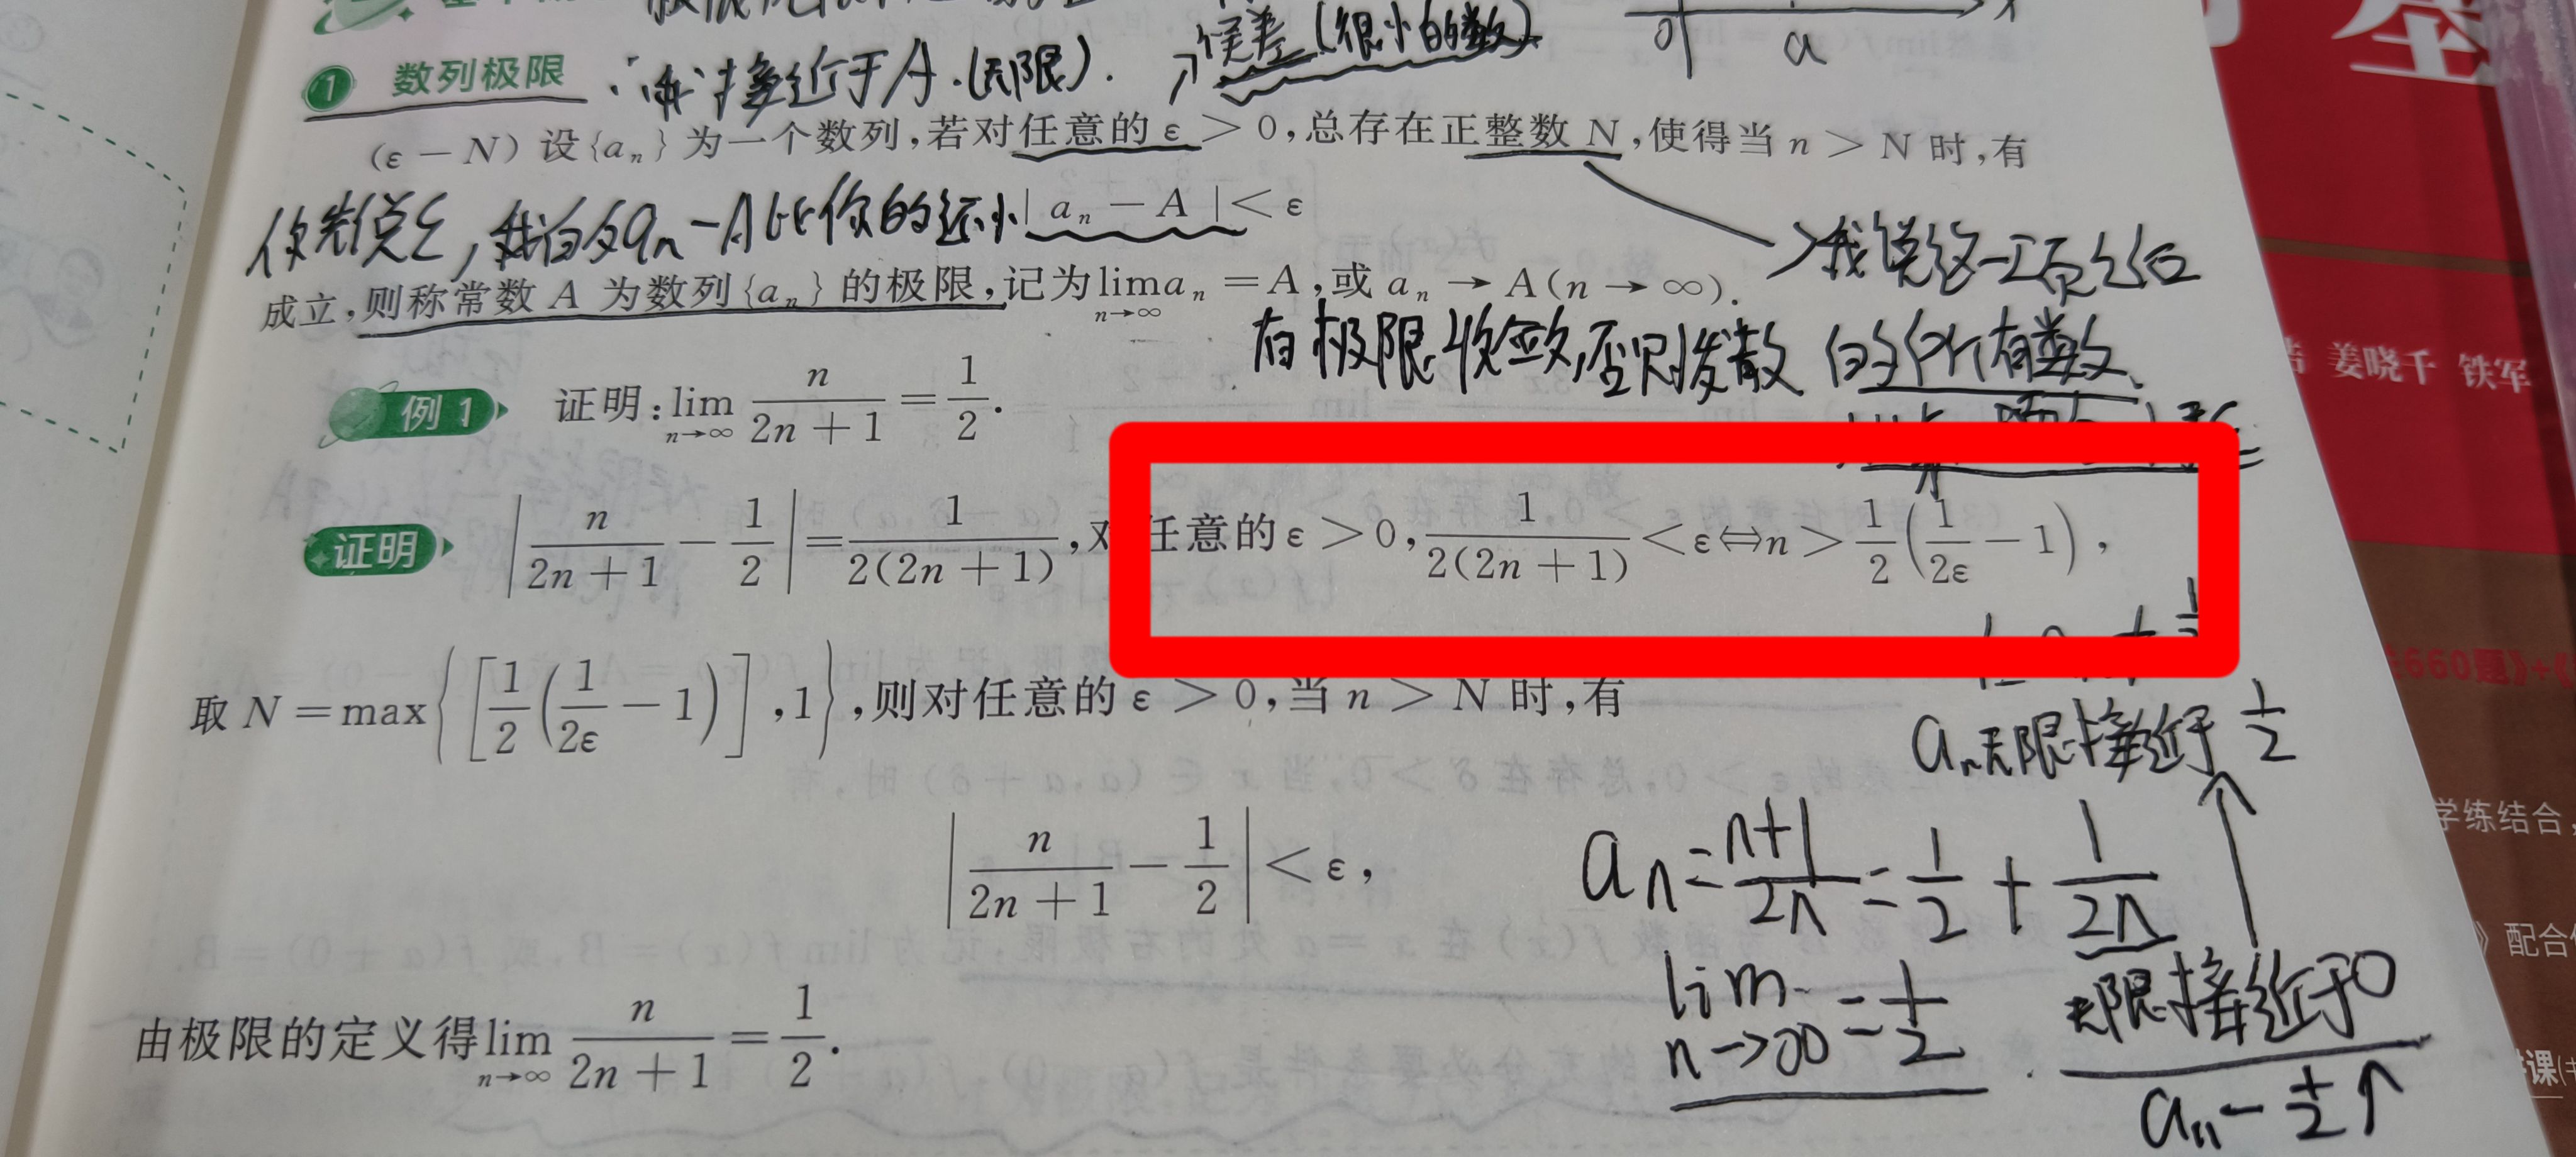 ① 数列极限 接近于A.(无限). 误差(很小的数)
a
(ε-N) 设{aₙ}为一个数列,若对任意的ε>0,总存在正整数N,使得当n>N时,有
你先说ε,我的aₙ-A比你的还小 |aₙ-A|<ε
我说这一项之后
成立,则称常数A为数列{aₙ}的极限,记为lim_{n→∞}aₙ=A,或aₙ→A(n→∞).
有极限收敛,否则发散 的所有数
例1 证明:lim_{n→∞} n/(2n+1)=1/2.
姜晓千 铁军
证明 |n/(2n+1)-1/2|=1/(2(2n+1)),对任意的ε>0,1/(2(2n+1))<ε⇔n>1/2(1/(2ε)-1),
取N=max{[1/2(1/(2ε)-1)],1},则对任意的ε>0,当n>N时,有
660题》+
aₙ无限接近于1/2
|n/(2n+1)-1/2|<ε,
学练结合,
aₙ=(n+1)/(2n)=1/2+1/(2n)
》配合
无限接近于0
由极限的定义得lim_{n→∞} n/(2n+1)=1/2.
lim_{n→∞}=1/2.
课
aₙ-1/2↑